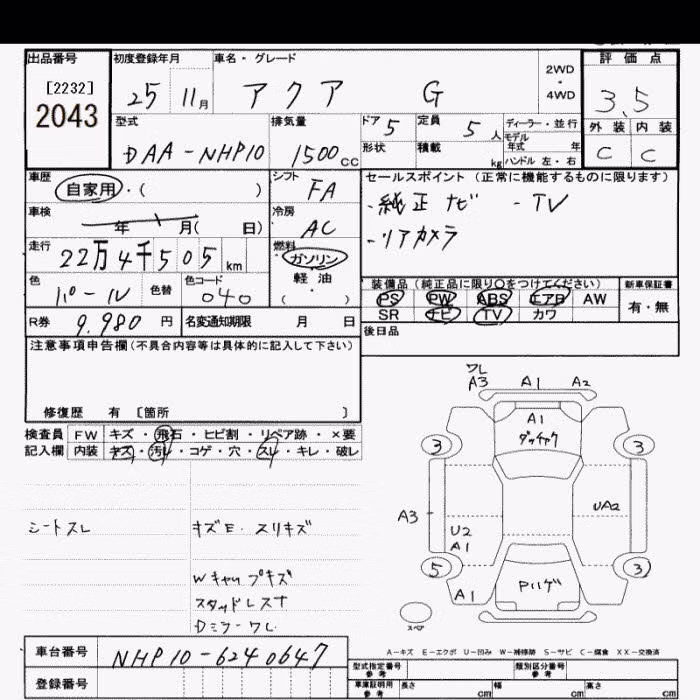 出品番号 初度登録年月 車名・グレード 評価点
[2232]
2043
25 11月 アクア G 2WD・4WD 3.5
型式 排気量 ドア 5 定員 5人 ディーラー・並行 外装 内装
DAA-NHP10 1500cc 形状 積載 kg モデル年式 年 ハンドル 左・右 C C
車歴 自家用・( ) シフト FA セールスポイント (正常に機能するものに限ります)
・純正ナビ ・TV
車検 年 月( 日) 冷房 AC
・リアカメラ
走行 22万4千505km 燃料 ガソリン
軽油
( )
色 パール 色替 色コード 040
装備品(純正品に限り○をつけてください) 新車保証書
PS PW ABS エアB AW 有・無
SR ナビ TV カワ
R券 9.980円 名変通知期限 月 日 後日品
注意事項申告欄(不具合内容等は具体的に記入して下さい)
修復歴 有 [箇所 ]
検査員 FW キズ・飛石・ヒビ割・リペア跡・×要
記入欄 内装 キズ・汚レ・コゲ・穴・スレ・キレ・破レ
シートスレ キズE・スリキズ
Wキャップキズ
スタッドレス
Dミラーワレ
ワレ
A3 A1 A2
A1
3 3
A3 U2 UA2
A1
5 3
A1 Pハゲ
スペア
A-キズ E-エクボ U-凹み W-補修跡 S-サビ C-腐食 XX-交換済
車台番号 NHP10-6240647
登録番号
型式指定番号 参考 類別区分番号 参考
車庫証明用 参考 長さ cm 幅 cm 高さ cm